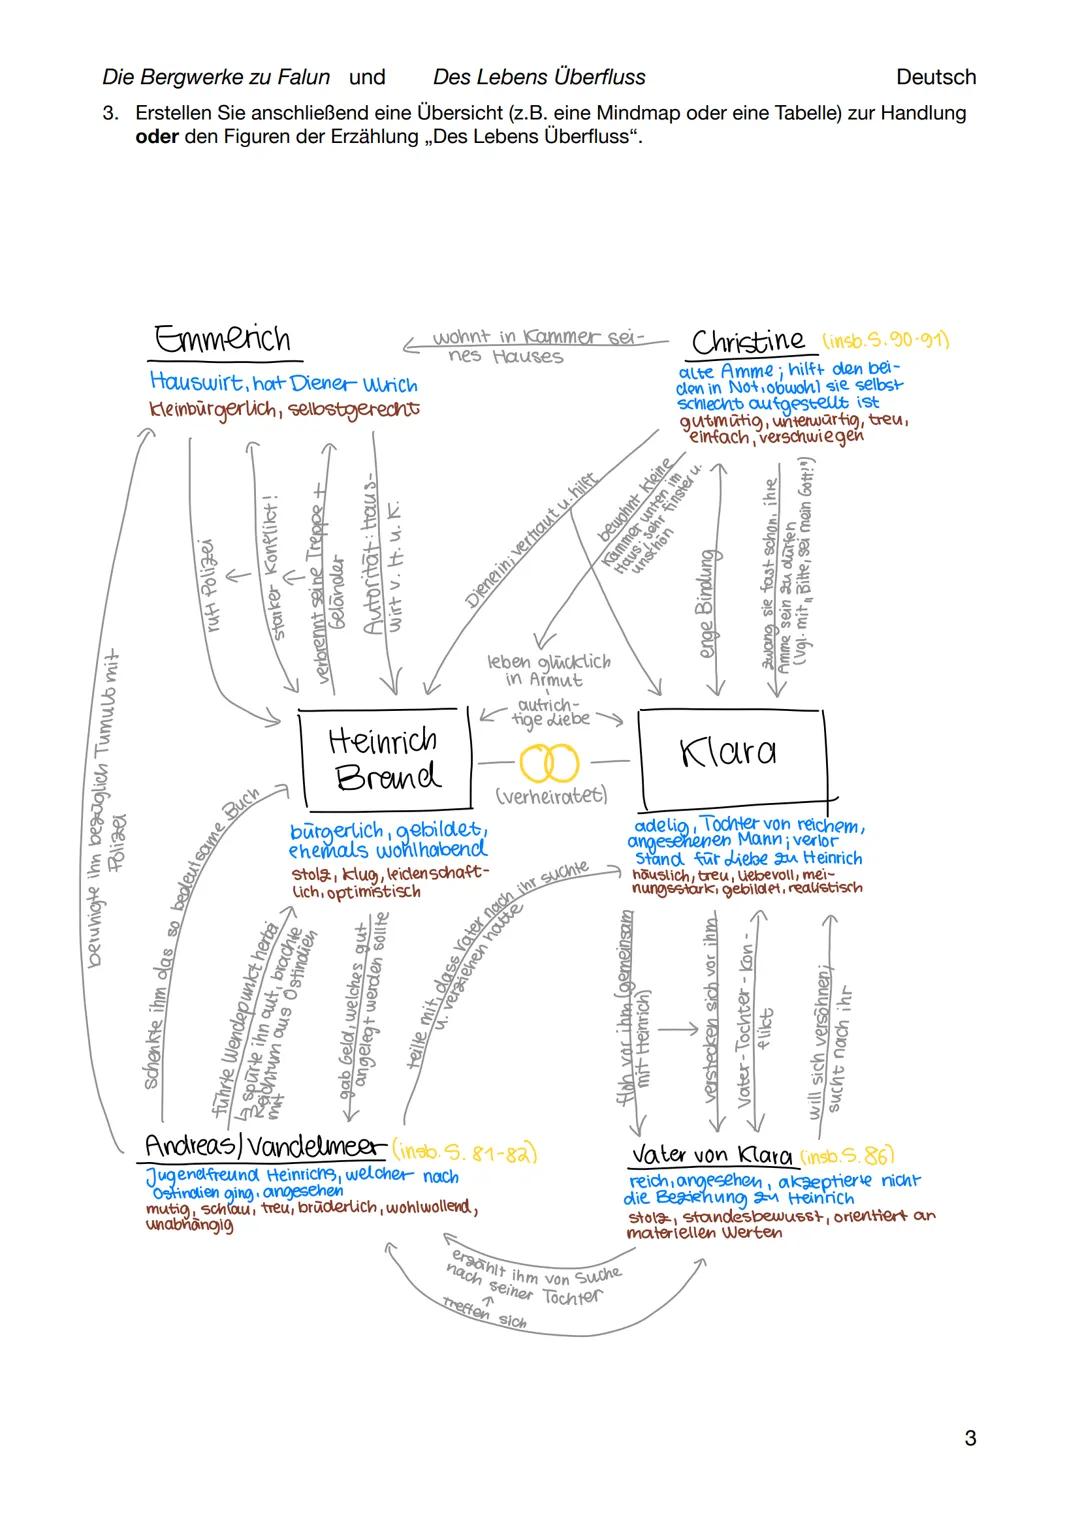 Die Bergwerke zu Falun und Des Lebens Überfluss Deutsch
3. Erstellen Sie anschließend eine Übersicht (z.B. eine Mindmap oder eine Tabelle) zur Handlung
oder den Figuren der Erzählung „Des Lebens Überfluss“.
Emmerich
Hauswirt, hat Diener Ulrich
kleinbürgerlich, selbstgerecht
wohnt in Kammer sei-
nes Hauses
Christine (insb. S. 90-91)
alte Amme; hilft den bei-
den in Not, obwohl sie selbst
schlecht aufgestellt ist
gutmütig, unterwürfig, treu,
einfach, verschwiegen
beruhigte ihn bezüglich Tumult mit
Polizei
ruft Polizei
starker Konflikt!
verbrennt seine Treppe +
Geländer
Autorität: Haus-
wirt v. H. u. K.
Dienerin; vertraut u. hilft
bewohnt kleine
Kammer unten im
Haus; sehr finster u.
unschön
enge Bindung
zwang sie fast schon, ihre
Amme sein zu dürfen
(vgl. mit „Bitte, sei mein Gott!“)
leben glücklich
in Armut
aufrich-
tige Liebe
Heinrich
Brand
(verheiratet)
Klara
bürgerlich, gebildet,
ehemals wohlhabend
stolz, klug, leidenschaft-
lich, optimistisch
adelig, Tochter von reichem,
angesehenen Mann; verlor
Stand für Liebe zu Heinrich
häuslich, treu, liebevoll, mei-
nungsstark, gebildet, realistisch
schenkte ihm das so bedeutsame Buch
führte Wendepunkt herbei
↳ spürte ihn auf, brachte
Reichtum aus Ostindien
mit
gab Geld, welches gut
angelegt werden sollte
teilte mit, dass Vater nach ihr suchte
u. verziehen hatte
floh vor ihm (gemeinsam
mit Heinrich)
verstecken sich vor ihm
Vater-Tochter-Kon-
flikt
will sich versöhnen;
sucht nach ihr
Andreas/Vandelmeer (insb. S. 81-82)
Jugendfreund Heinrichs, welcher nach
Ostindien ging, angesehen
mutig, schlau, treu, brüderlich, wohlwollend,
unabhängig
Vater von Klara (insb. S. 86)
reich, angesehen, akzeptierte nicht
die Beziehung zu Heinrich
stolz, standesbewusst, orientiert an
materiellen Werten
erzählt ihm von Suche
nach seiner Tochter
treffen sich
3